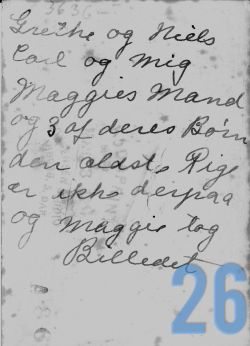 3636
Grethe og Niels
Carl og mig
Maggies Mand
og 3 af deres Børn
den ældste Pige
er ikke derpaa
og Maggie tog
Billedet
26